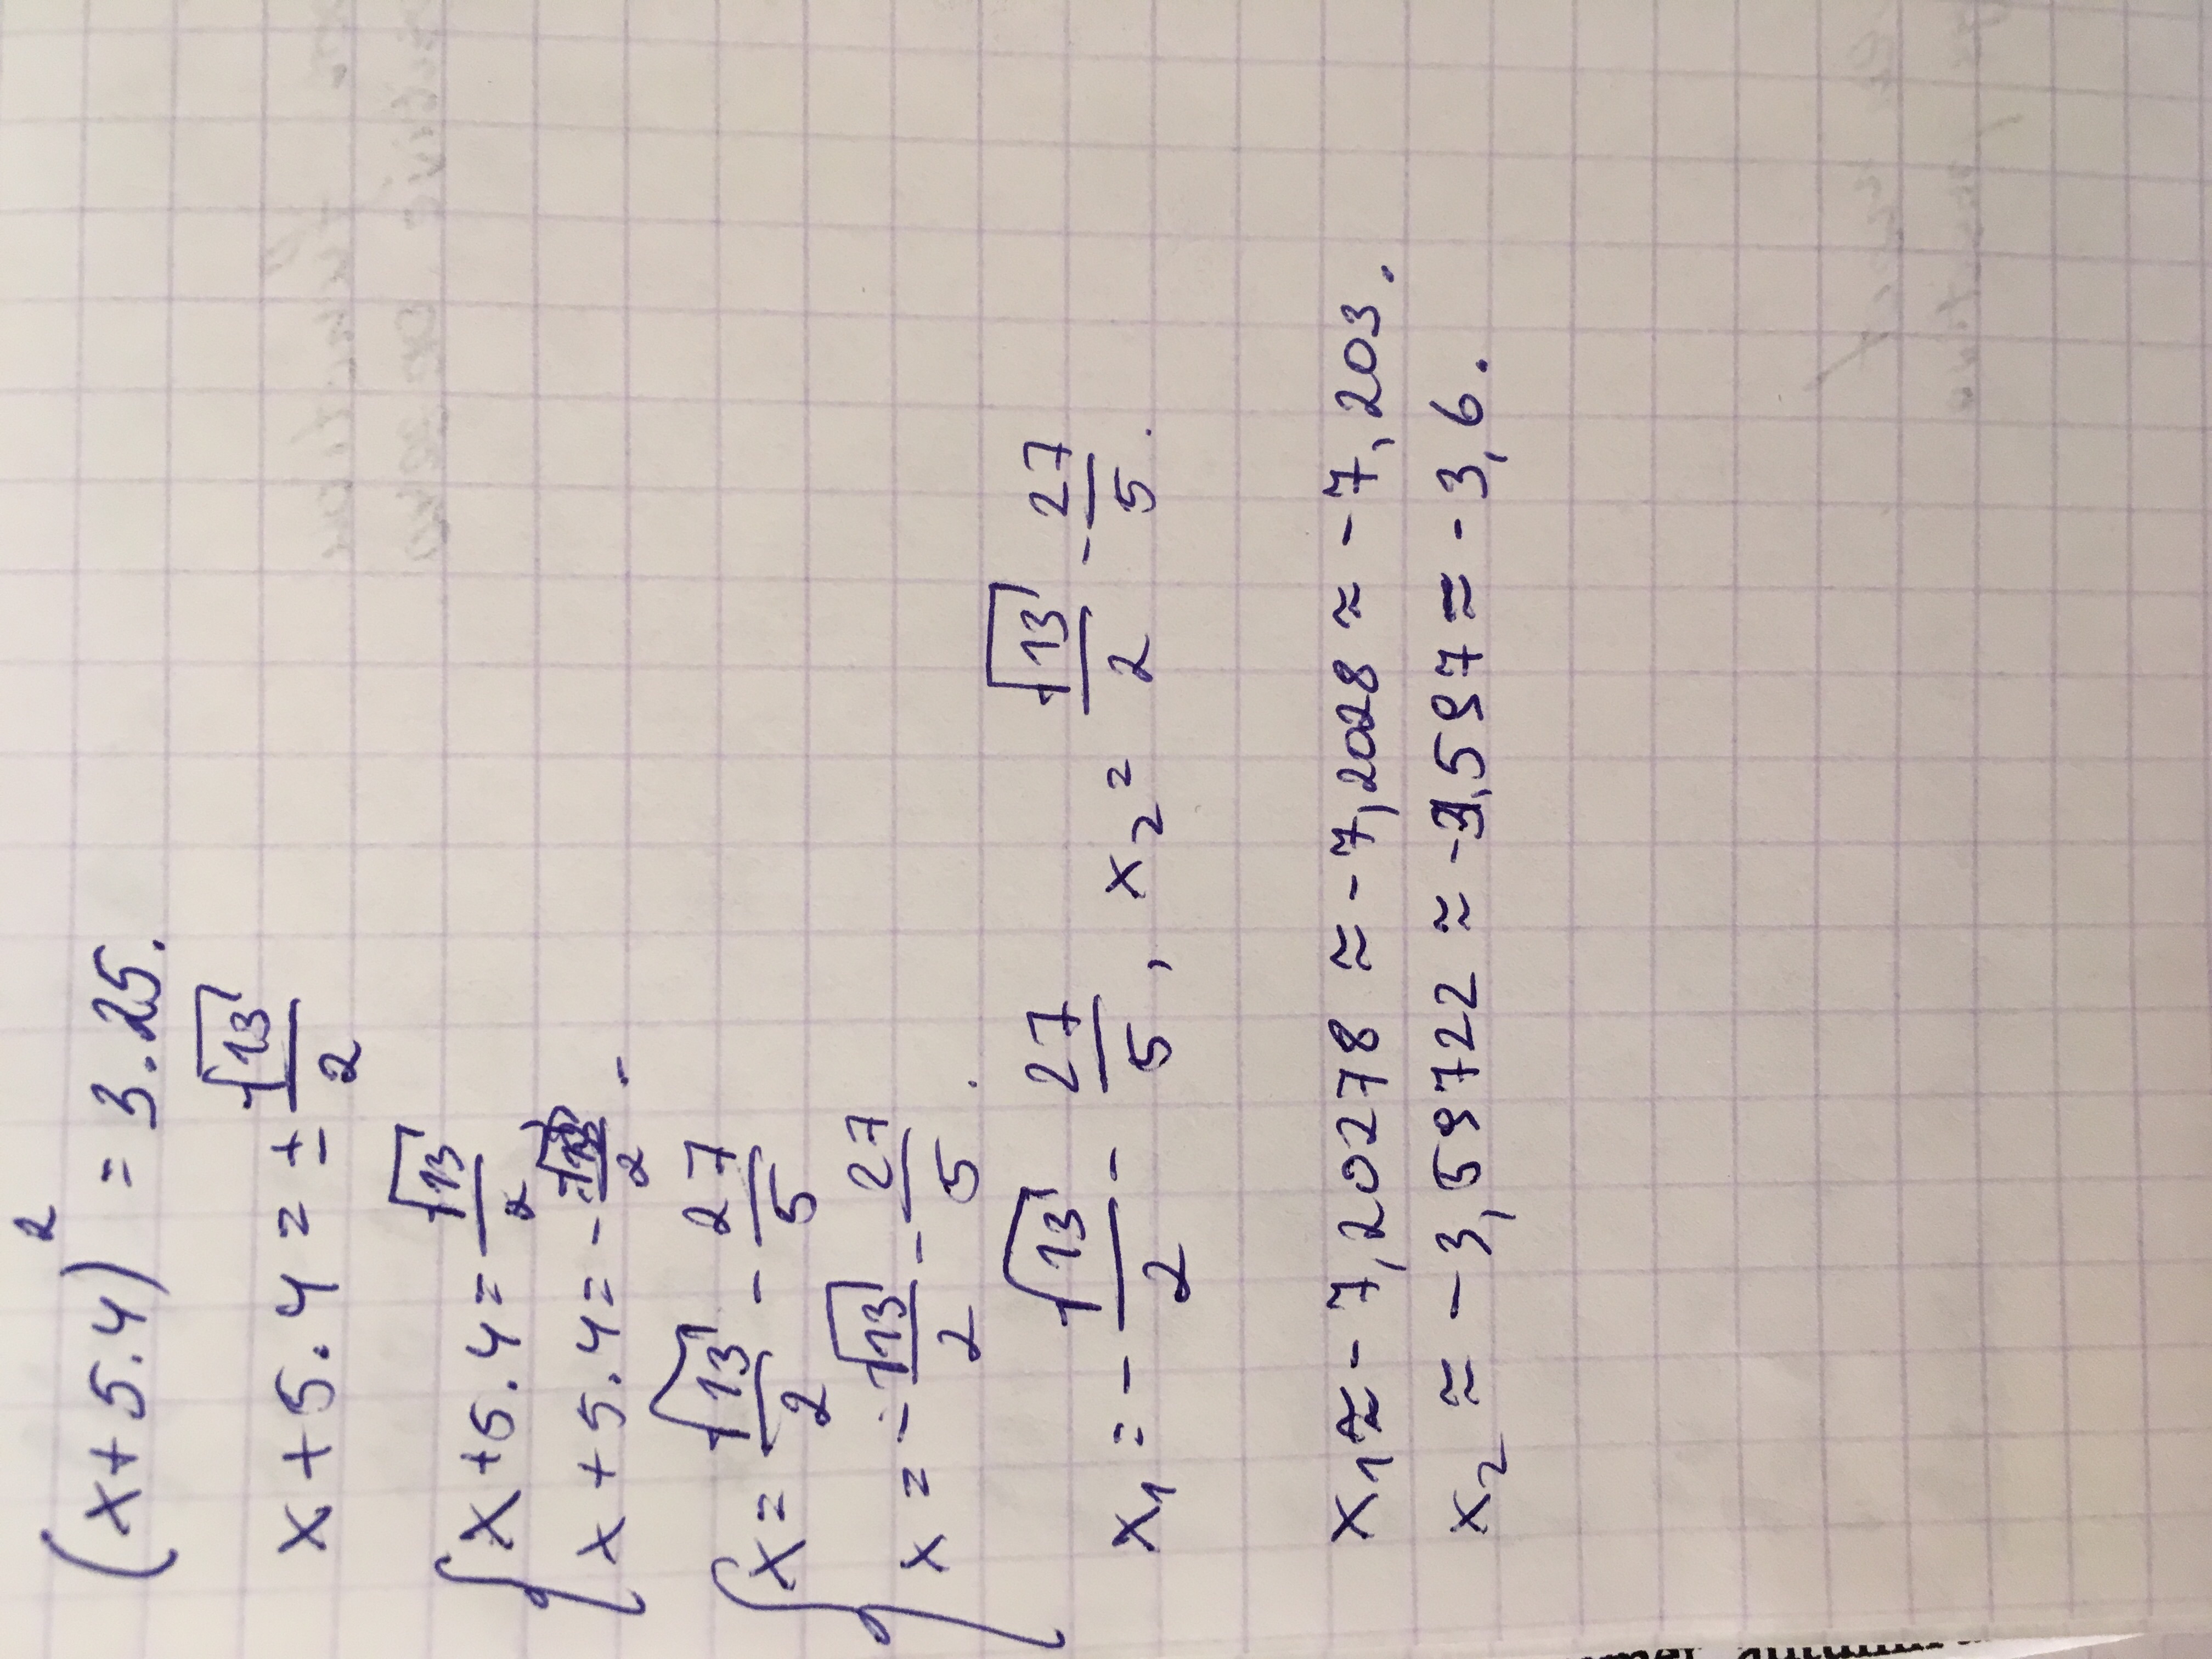 (x+5.4)² = 3.25.
x+5.4 = ± √13/2
{ x+5.4 = √13/2
x+5.4 = - √13/2 .
{ x = √13/2 - 27/5
x = - √13/2 - 27/5 .
x₁ = - √13/2 - 27/5 , x₂ = √13/2 - 27/5 .
x₁ ≈ -7,20278 ≈ -7,2028 ≈ -7,203.
x₂ ≈ -3,59722 ≈ -3,597 ≈ -3,6.